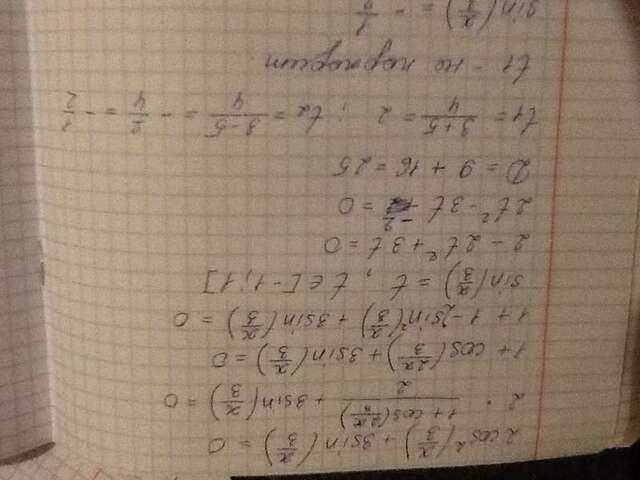 2 cos²(x/3) + 3 sin(x/3) = 0
2 · (1 + cos(2x/3))/2 + 3 sin(x/3) = 0
1 + cos(2x/3) + 3 sin(x/3) = 0
1 + 1 - 2 sin²(x/3) + 3 sin(x/3) = 0
sin(x/3) = t, t ∈ [-1; 1]
2 - 2t² + 3t = 0
2t² - 3t - 2 = 0
D = 9 + 16 = 25
t1 = (3+5)/4 = 2 ; t2 = (3-5)/4 = -2/4 = -1/2
t1 - не подходит
sin(x/3) = -1/2